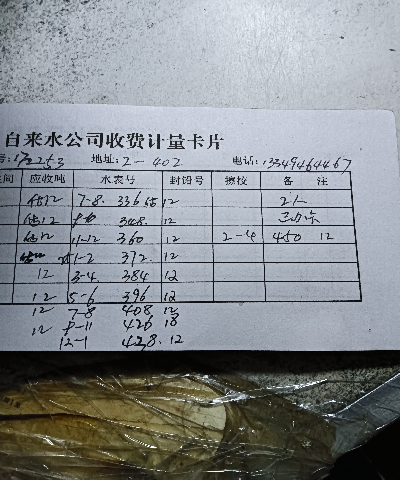 自来水公司收费计量卡片
号: 172253 地址: 2-402 电话: 13349464467
间 应收吨 水表号 封铅号 擦校 备注
估12 7-8. 336 12 2人
估12 348. 12
估12 11-12 360 12 2-4 450 12
1-2 372. 12
12 3-4. 384 12
12 5-6 396 12
12 7-8 408 12
12 426 18
12-1 428. 12